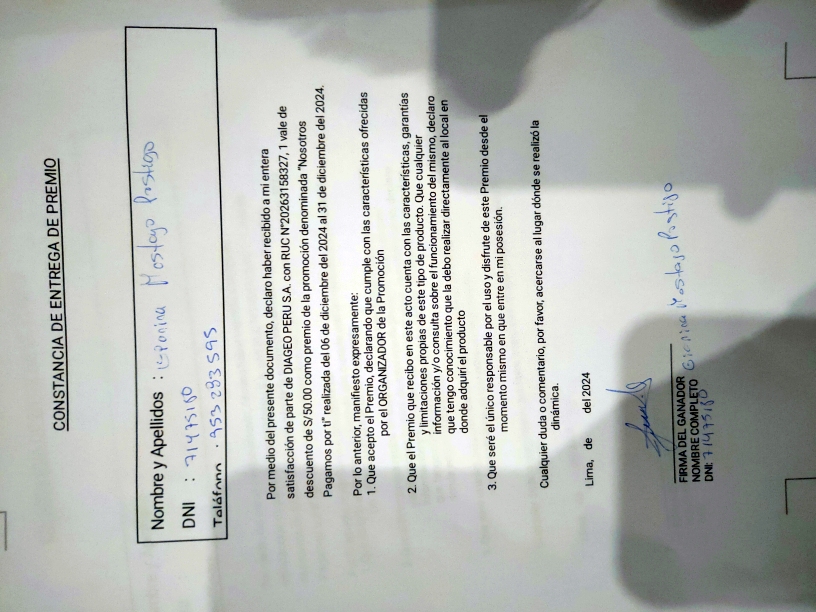 CONSTANCIA DE ENTREGA DE PREMIO
Nombre y Apellidos : Mostajo Postigo
DNI : 71475180
Teléfono . 953 283 595
Por medio del presente documento, declaro haber recibido a mi entera
satisfacción de parte de DIAGEO PERU S.A. con RUC N°20263158327, 1 vale de
descuento de S/50.00 como premio de la promoción denominada "Nosotros
Pagamos por ti" realizada del 06 de diciembre del 2024 al 31 de diciembre del 2024.
Por lo anterior, manifiesto expresamente:
1. Que acepto el Premio, declarando que cumple con las características ofrecidas
por el ORGANIZADOR de la Promoción
2. Que el Premio que recibo en este acto cuenta con las características, garantías
y limitaciones propias de este tipo de producto. Que cualquier
información y/o consulta sobre el funcionamiento del mismo, declaro
que tengo conocimiento que la debo realizar directamente al local en
donde adquirí el producto
3. Que seré el único responsable por el uso y disfrute de este Premio desde el
momento mismo en que entre en mi posesión.
Cualquier duda o comentario, por favor, acercarse al lugar dónde se realizó la
dinámica.
Lima, de del 2024
FIRMA DEL GANADOR
NOMBRE COMPLETO Mostajo Postigo
DNI: 71475180